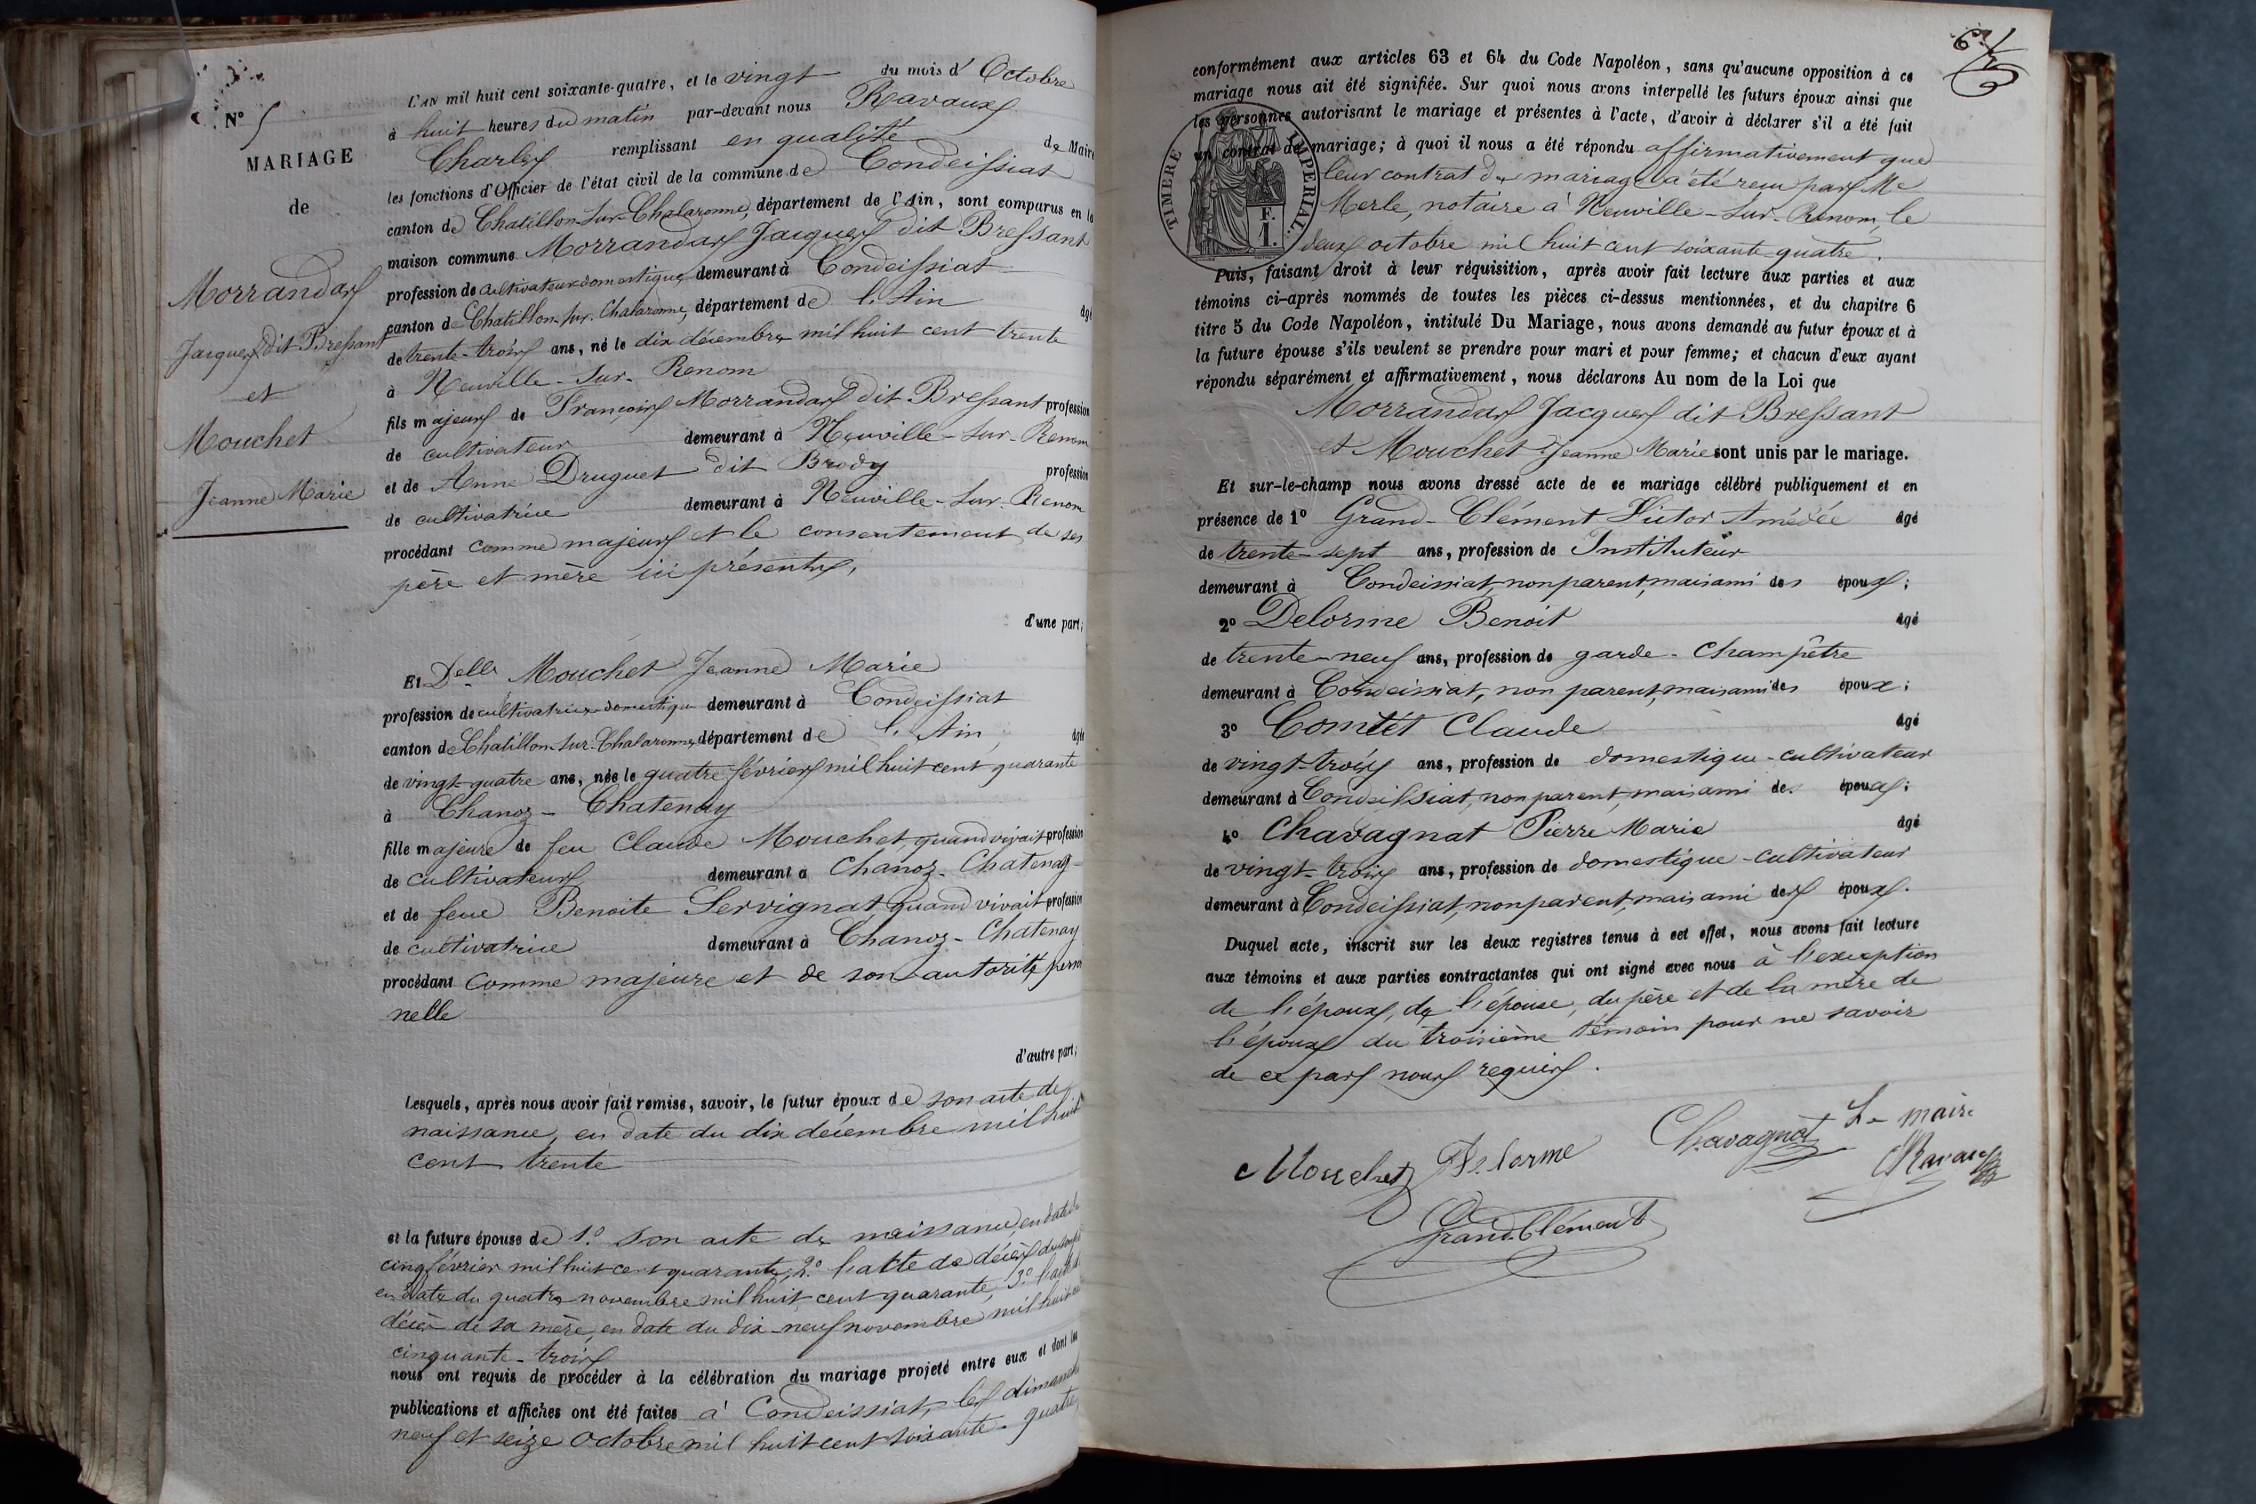 N° 5
MARIAGE
de
Morrandas
Jacques dit Bressant
et
Mouchet
Jeanne Marie
L'AN mil huit cent soixante-quatre, et le vingt du mois d' Octobre
à huit heures du matin par-devant nous Ravaux
Charles remplissant en qualité de Maire
les fonctions d'Officier de l'état civil de la commune de Condeissiat
canton de Chatillon-sur-Chalaronne, département de l'Ain, sont comparus en la
maison commune Morrandas Jacques dit Bressant
profession de cultivateur domestique demeurant à Condeissiat
canton de Chatillon-sur-Chalaronne, département de l'Ain âgé
de trente-trois ans, né le dix décembre mil huit cent trente
à Neuville-sur-Renom
fils majeur de François Morrandas dit Bressant profession
de cultivateur demeurant à Neuville-sur-Renom
et de Anne Druguet dit Brody profession
de cultivatrice demeurant à Neuville-sur-Renom
procédant comme majeur et le consentement de ses
père et mère ici présents,
d'une part;
Et Delle Mouchet Jeanne Marie
profession de cultivatrice domestique demeurant à Condeissiat
canton de Chatillon-sur-Chalaronne, département de l'Ain, âgée
de vingt-quatre ans, née le quatre février mil huit cent quarante
à Chanoz-Chatenay
fille majeure de feu Claude Mouchet, quand vivait profession
de cultivateur demeurant à Chanoz-Chatenay
et de feue Benoite Servignat, quand vivait profession
de cultivatrice demeurant à Chanoz-Chatenay
procédant comme majeure et de son autorité person
nelle
d'autre part;
Lesquels, après nous avoir fait remise, savoir, le futur époux de son acte de
naissance, en date du dix décembre mil huit
cent trente
et la future épouse de 1° son acte de naissance, en date du
cinq février mil huit cent quarante, 2° l'acte de décès de son père
en date du quatre novembre mil huit cent quarante, 3° l'acte de
décès de sa mère, en date du dix-neuf novembre mil huit cent
cinquante-trois
nous ont requis de procéder à la célébration du mariage projeté entre eux et dont les
publications et affiches ont été faites à Condeissiat, les dimanches
neuf et seize octobre mil huit cent soixante-quatre
conformément aux articles 63 et 64 du Code Napoléon, sans qu'aucune opposition à ce
mariage nous ait été signifiée. Sur quoi nous avons interpellé les futurs époux ainsi que
les personnes autorisant le mariage et présentes à l'acte, d'avoir à déclarer s'il a été fait
un contrat de mariage; à quoi il nous a été répondu affirmativement que
leur contrat de mariage a été reçu par Me
Merle, notaire à Neuville-sur-Renom, le
deux octobre mil huit cent soixante quatre.
TIMBRE IMPÉRIAL.
F.
1.
Puis, faisant droit à leur réquisition, après avoir fait lecture aux parties et aux
témoins ci-après nommés de toutes les pièces ci-dessus mentionnées, et du chapitre 6
titre 5 du Code Napoléon, intitulé Du Mariage, nous avons demandé au futur époux et à
la future épouse s'ils veulent se prendre pour mari et pour femme; et chacun d'eux ayant
répondu séparément et affirmativement, nous déclarons Au nom de la Loi que
Morrandas Jacques dit Bressant
et Mouchet Jeanne Marie sont unis par le mariage.
Et sur-le-champ nous avons dressé acte de ce mariage célébré publiquement et en
présence de 1° Grand-Clément Victor Amédée âgé
de trente-sept ans, profession de Instituteur
demeurant à Condeissiat, non parent, mais ami des époux;
2° Delorme Benoit âgé
de trente-neuf ans, profession de garde-champêtre
demeurant à Condeissiat, non parent, mais ami des époux;
3° Comtet Claude âgé
de vingt-trois ans, profession de domestique-cultivateur
demeurant à Condeissiat, non parent, mais ami des époux;
4° Chavagnat Pierre Marie âgé
de vingt-trois ans, profession de domestique-cultivateur
demeurant à Condeissiat, non parent, mais ami des époux.
Duquel acte, inscrit sur les deux registres tenus à cet effet, nous avons fait lecture
aux témoins et aux parties contractantes qui ont signé avec nous à l'exception
de l'époux, de l'épouse, du père et de la mère de
l'époux du troisième témoin pour ne savoir
de ce par nous requis.
Mouchet Delorme Chavagnat Le maire
Ravaux
Grand-Clément